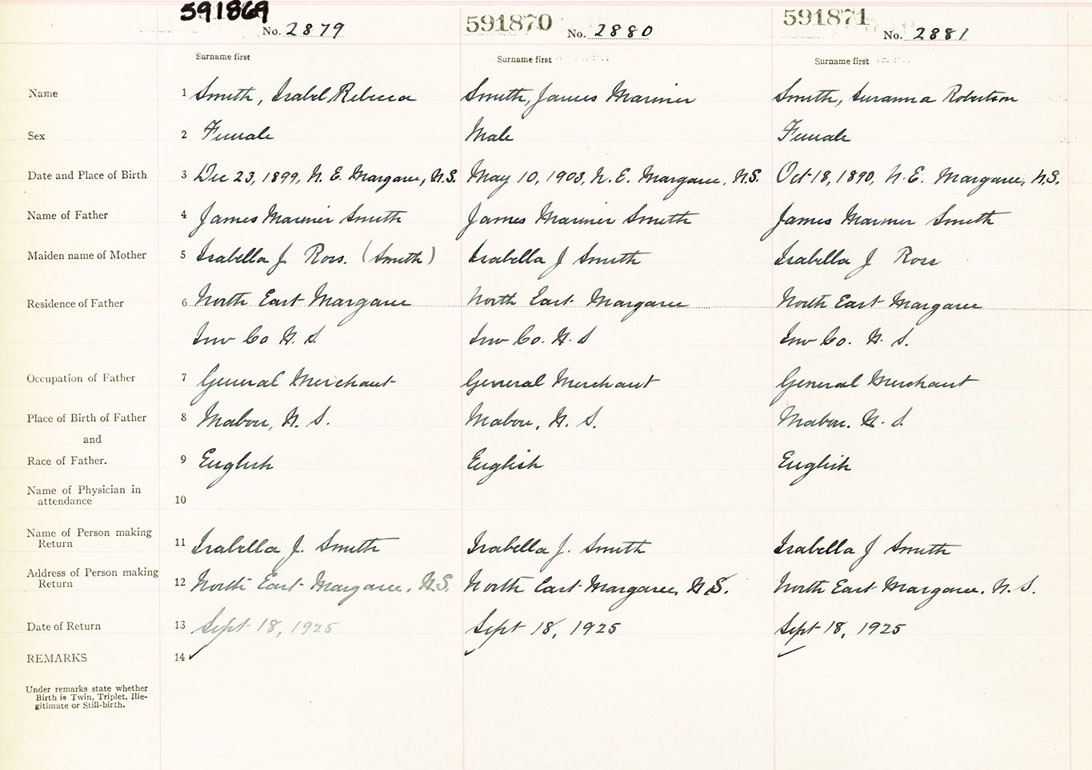 591869 591870 591871
No. 2879 No. 2880 No. 2881
Surname first Surname first Surname first
Name 1 Smith, Isabel Rebecca Smith, James Mariner Smith, Susanna Robertson
Sex 2 Female Male Female
Date and Place of Birth 3 Dec 23, 1899, N. E. Margaree, N.S. May 10, 1903, N. E. Margaree, N.S. Oct 18, 1890, N. E. Margaree, N.S.
Name of Father 4 James Mariner Smith James Mariner Smith James Mariner Smith
Maiden name of Mother 5 Isabella J. Ross. (Smith) Isabella J Smith Isabella J Ross
Residence of Father 6 North East Margaree North East Margaree North East Margaree
Inv Co N. S Inv Co. N. S Inv Co. N. S.
Occupation of Father 7 General Merchant General Merchant General Merchant
Place of Birth of Father 8 Mabou, N. S. Mabou, N. S. Mabou. N. S
and
Race of Father. 9 English English English
Name of Physician in
attendance 10
Name of Person making
Return 11 Isabella J. Smith Isabella J. Smith Isabella J Smith
Address of Person making
Return 12 North East Margaree, N.S. North East Margaree, N.S. North East Margaree, N. S.
Date of Return 13 Sept 18, 1925 Sept 18, 1925 Sept 18, 1925
REMARKS 14
Under remarks state whether
Birth is Twin, Triplet, Ille-
gitimate or Still-birth.